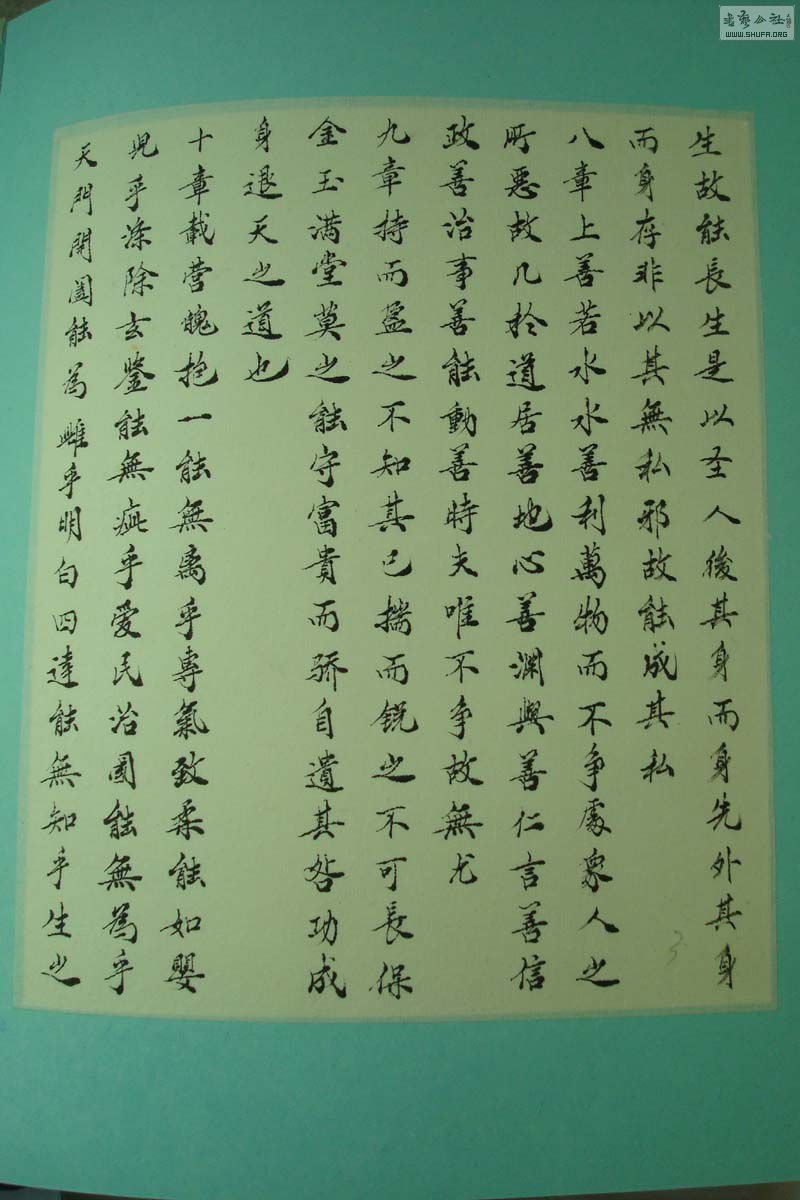 生故能長生是以圣人後其身而身先外其身
而身存非以其無私邪故能成其私
八章上善若水水善利萬物而不争處衆人之
所惡故几於道居善地心善渊與善仁言善信
政善治事善能動善時夫唯不争故無尤
九章持而盈之不知其已揣而锐之不可長保
金玉满堂莫之能守富貴而骄自遺其咎功成
身退天之道也
十章載营魄抱一能無离乎專氣致柔能如嬰
兒乎滌除玄鑒能無疵乎爱民治國能無為乎
天門開阖能為雌乎明白四達能無知乎生之
書藝公社
WWW.SHUFA.ORG